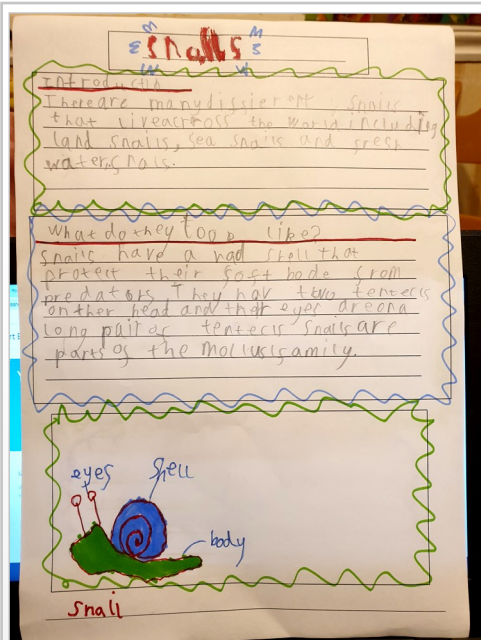 snails
Introductin
There are many dissierent snails
that live across the world including
land snails, sea snails and sresh
water snails.
What do they look like?
snails have a had shell that
protect their sost bode srom
predators They hav two tentecls
on ther head and ther eyes are on a
long pair os tentecls snails are
parts os the mollusk samily.
eyes shell
body
snail